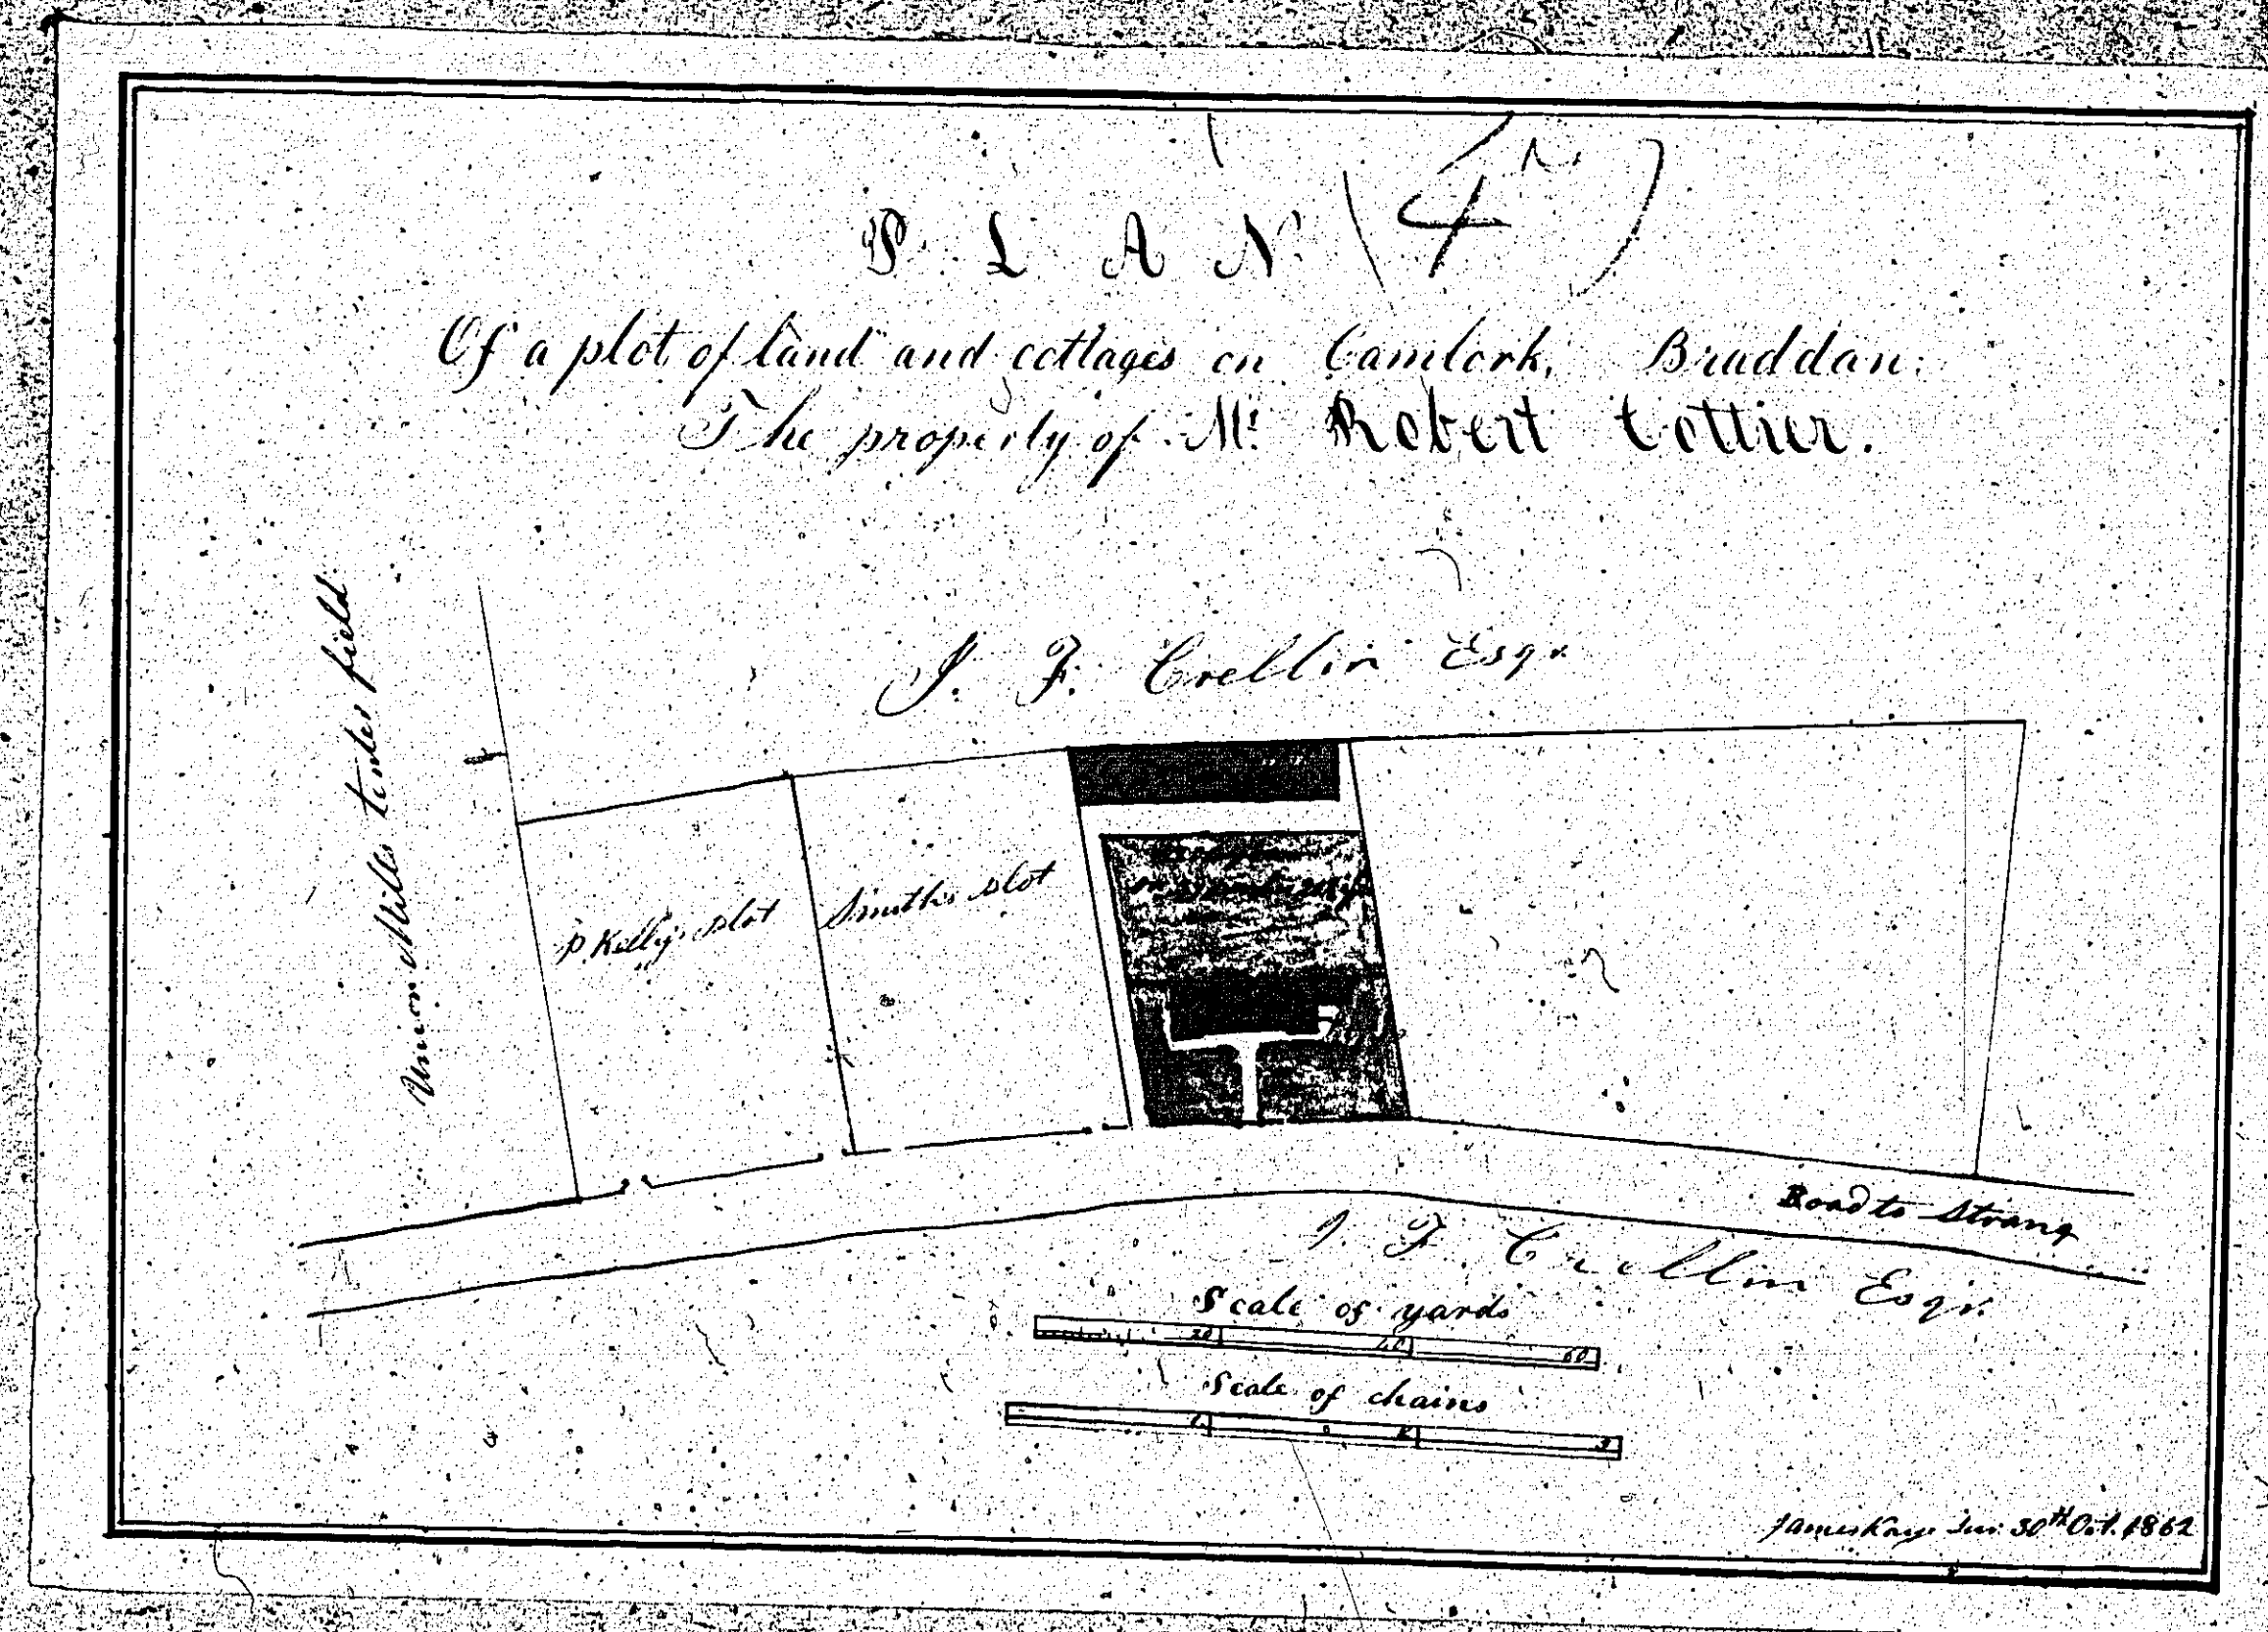 PLAN (4)
Of a plot of land and cottages on Camlork, Braddan.
The property of Mr. Robert Cottier.
J. F. Crellin Esqr.
Union Mills tenter field
P Kelly's plot
Smith's plot
Road to Strang
J. F. Crellin Esqr.
Scale of yards
20 40 60
Scale of chains
1 2 3
James Kaye 30th Oct. 1862